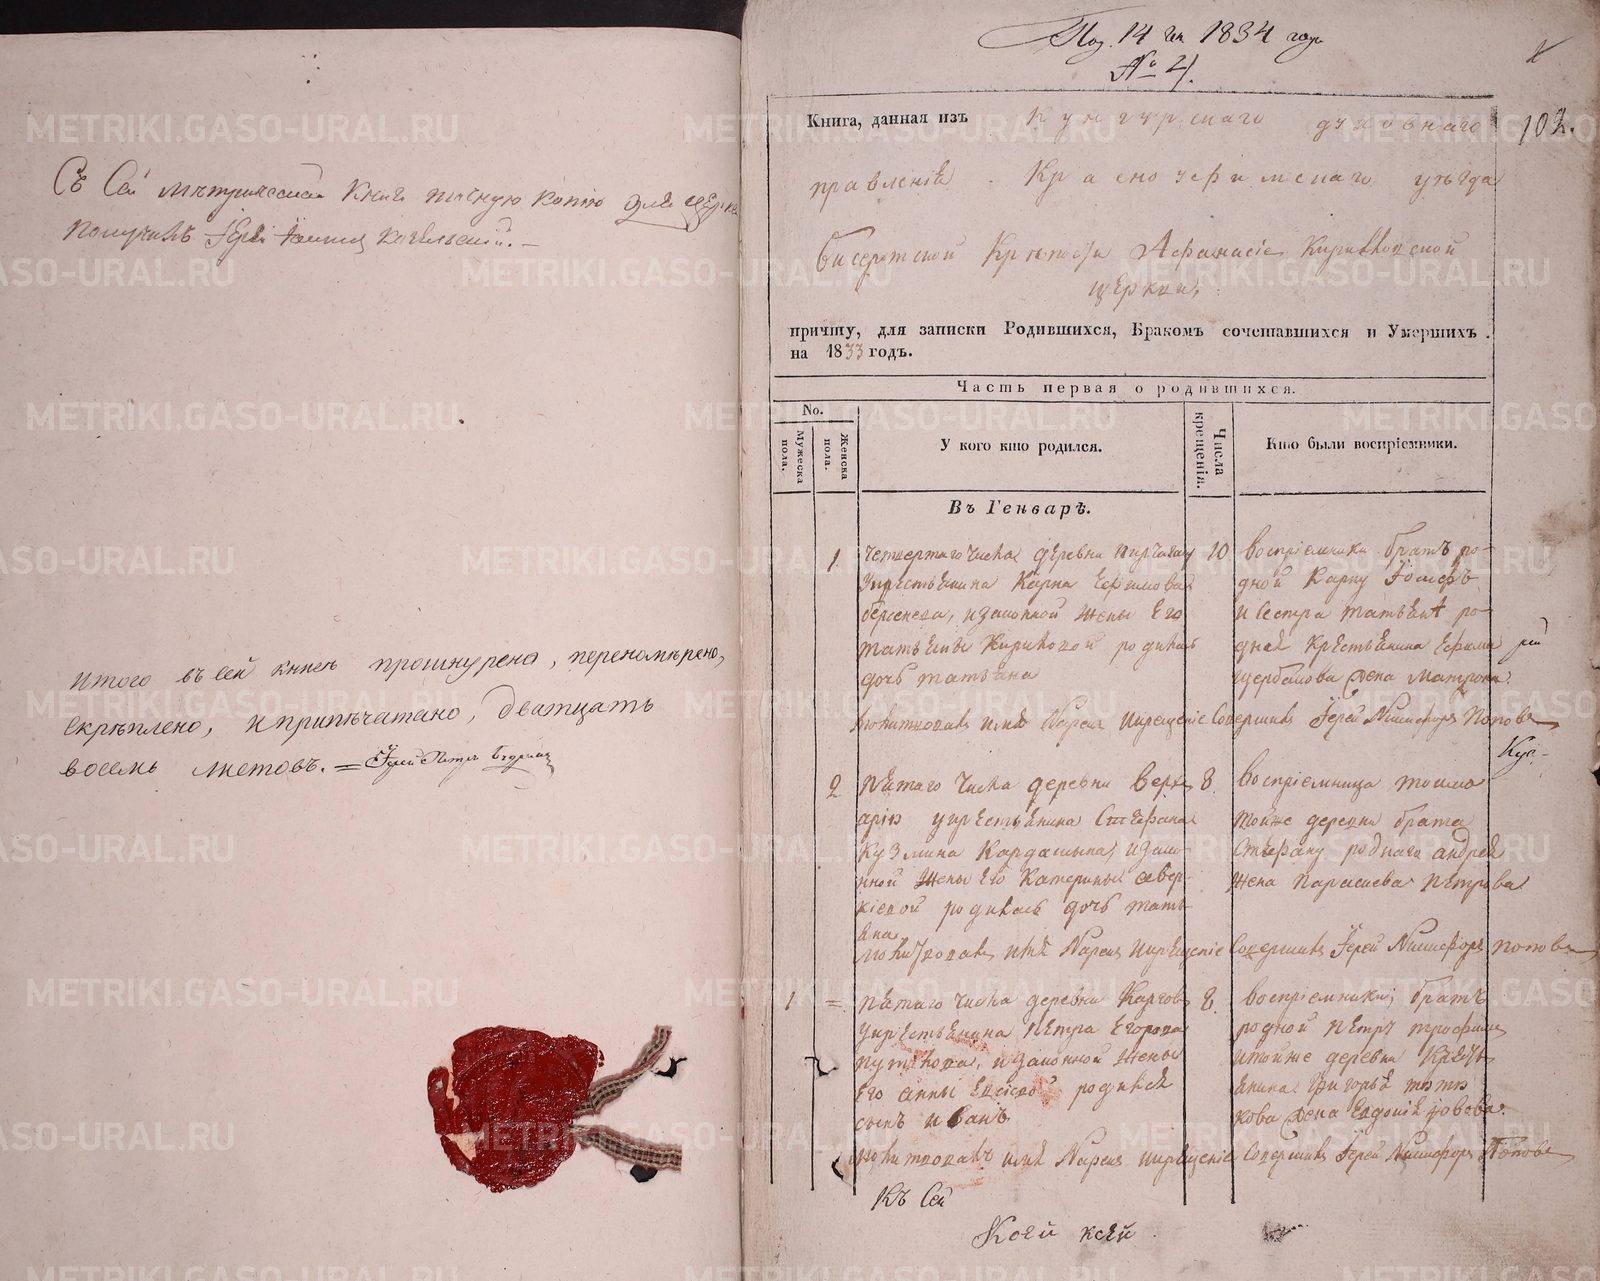 Съ Сей метрической Книги точную копию для церкви
получилъ Іерей
итого въ сей книге прошнурено, перенумерено,
скрѣплено, и припечатано, дватцать
восемь листовъ. = Іерей Петръ
14 1834 год
№ 4.
102.
Книга, данная изъ Кунгурскаго духовнаго
правленія Красноуфимскаго уѣзда
бисертской Крѣпости Афанасіе Кирилловской
церкви,
причту, для записки Родившихся, Бракомъ сочетавшихся и Умершихъ
на 1833 годъ.
Часть первая о родившихся.
No.
Мужеска пола.
Женска пола.
У кого кто родился.
Числа крещенія.
Кто были воспріемники.
Въ Генварѣ.
1
четвертаго числа деревни
укрестьянина Карпа Ефимова
берсенева, изаконной жены Его
татьяны Кириловой родилась
дочь татьяна
10
воспріемники братъ ро-
дной Карпу
и сестра татьяна ро-
дная крестьянина Ефима
щербакова жена матрона.
молитвовалъ имя нарекъ икрещеніе совершилъ Іерей Никифоръ Поповъ
2
пятаго числа деревни Верхъ
арію укрестьянина Стефана
Кузмина Кардашына, изако-
нной жены Его Катерины авер-
кіевой родилась дочь тать-
яна
8.
воспріемница
тойже деревни брата
Стефану роднаго андрея
жена параскева петрова
молитвовалъ имя нарекъ икрещеніе совершилъ Іерей Никифоръ поповъ
1 =
пятаго числа деревни
укрестьянина Петра Егорова
путилова, изаконной жены
Его анны родился
сынъ иванъ
8.
воспріемники; братъ
родной петръ трофимъ
итойже деревни Кресть
янина григорья тютю
кова жена
молитвовалъ имя нарекъ икрещеніе совершилъ Іерей Никифоръ Поповъ
Къ Сей